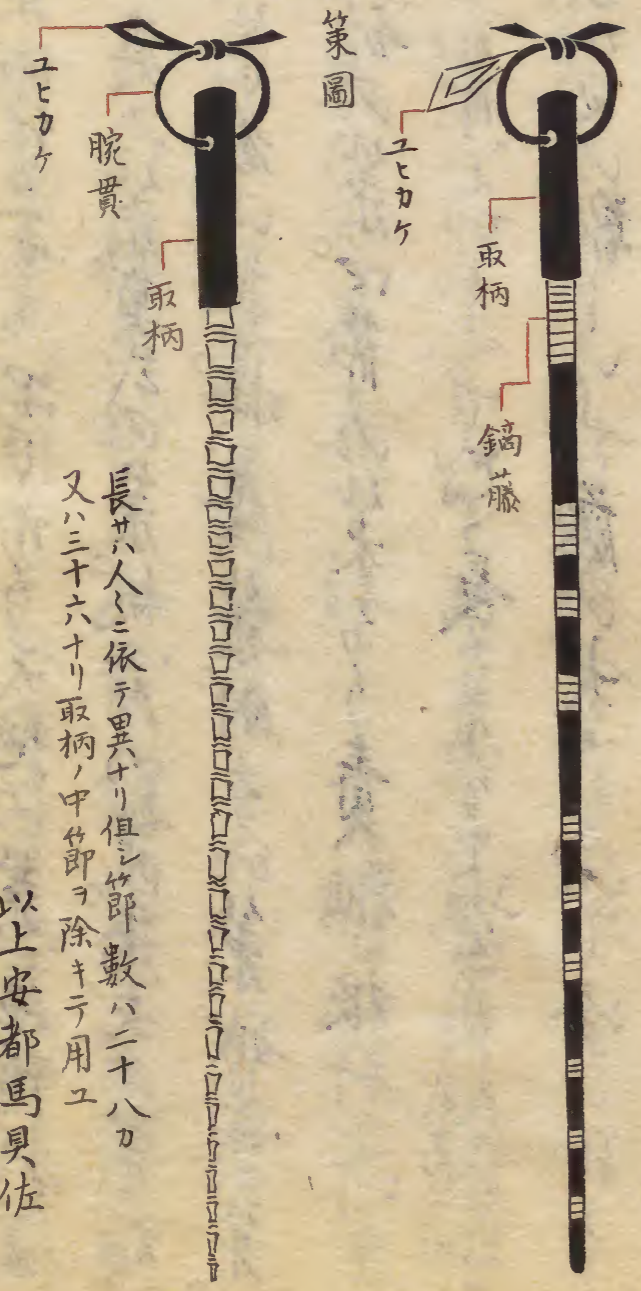 策圖
ユヒカケ
取柄
鏑藤
ユヒカケ
腕貫
取柄
長サハ人〻ニ依テ異ナリ但シ節數ハ二十八カ
又ハ三十六ナリ取柄ノ中節ヲ除キテ用ユ
以上安都馬具佐